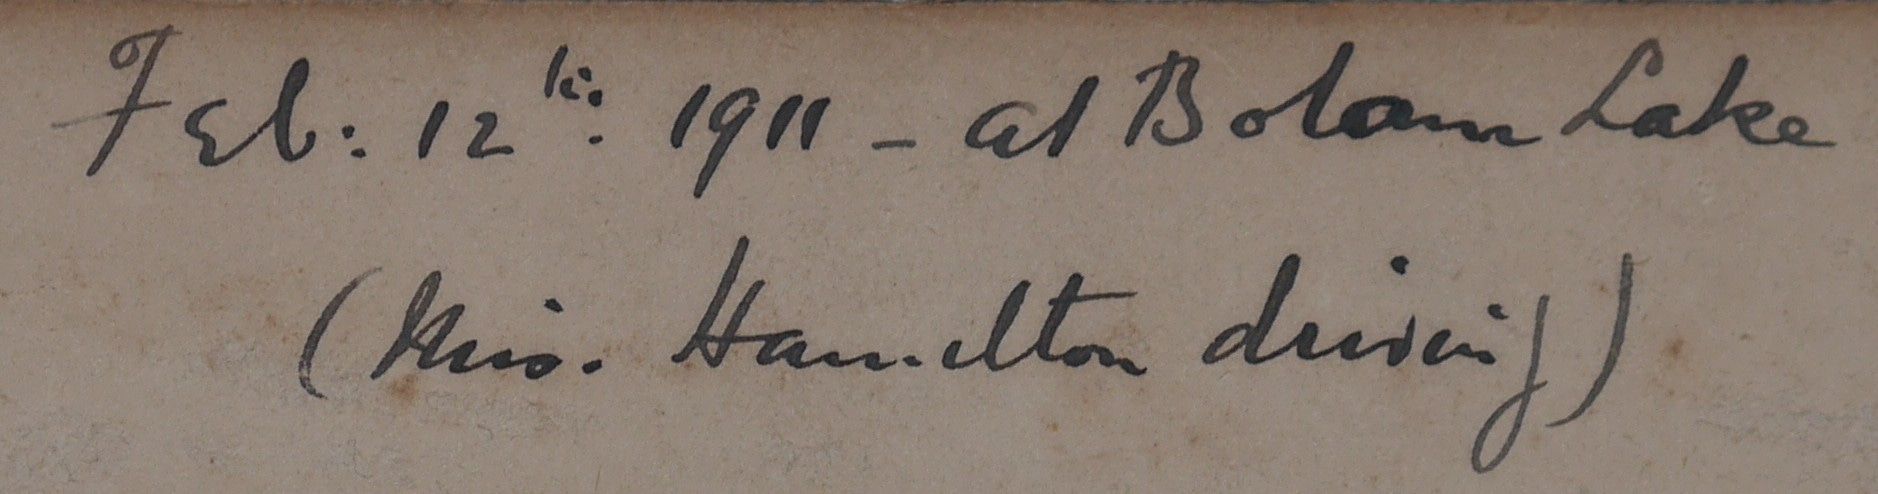 Feb: 12th: 1911 - at Bolam Lake
(Miss. Hamilton driving)